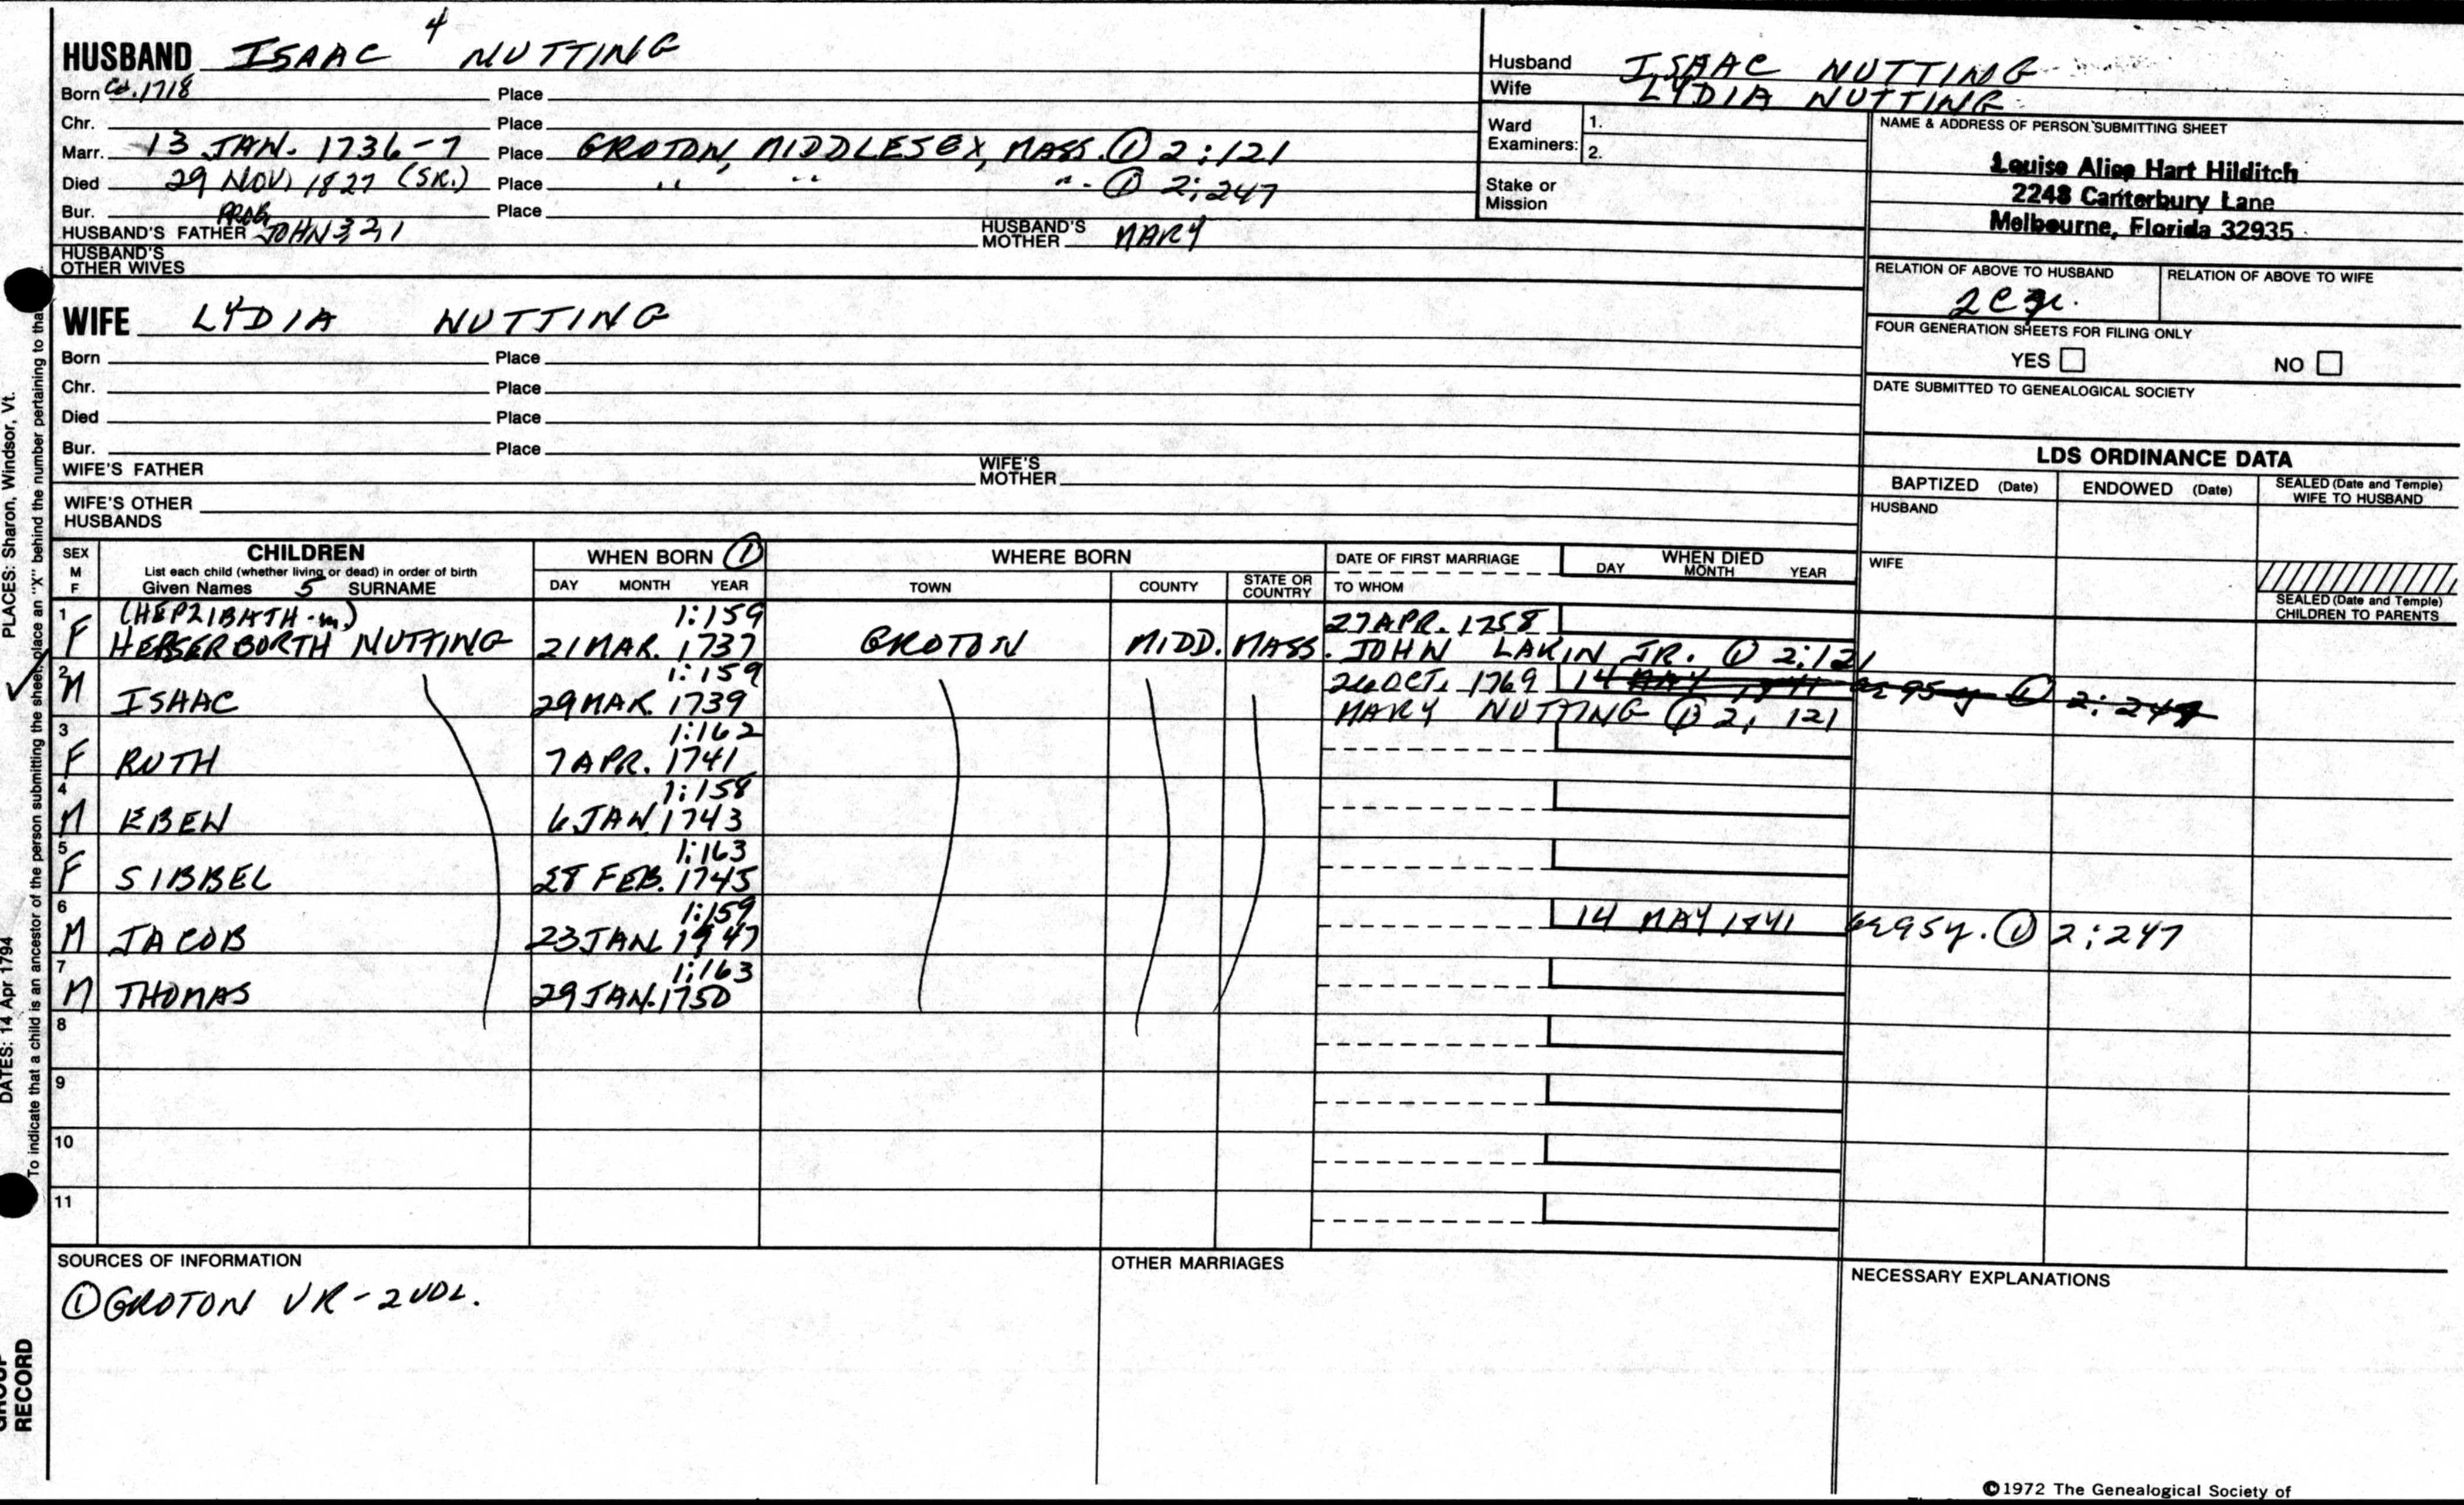 HUSBAND ISAAC 4 NUTTING
Born Ca. 1718 Place
Chr. Place
Marr. 13 JAN. 1736-7 Place GROTON, MIDDLESEX, MASS. ① 2:121
Died 29 NOV. 1827 (SR.) Place " " " ① 2:247
Bur. Place
HUSBAND'S FATHER PROB JOHN 3 2 1 HUSBAND'S MOTHER MARY
HUSBAND'S OTHER WIVES
Husband ISAAC NUTTING
Wife LYDIA NUTTING
Ward Examiners: 1.
2.
Stake or Mission
NAME & ADDRESS OF PERSON SUBMITTING SHEET
Louise Alice Hart Hilditch
2248 Canterbury Lane
Melbourne, Florida 32935
RELATION OF ABOVE TO HUSBAND RELATION OF ABOVE TO WIFE
FOUR GENERATION SHEETS FOR FILING ONLY
YES NO
DATE SUBMITTED TO GENEALOGICAL SOCIETY
WIFE LYDIA NUTTING
Born Place
Chr. Place
Died Place
Bur. Place
WIFE'S FATHER WIFE'S MOTHER
WIFE'S OTHER HUSBANDS
LDS ORDINANCE DATA
BAPTIZED (Date) ENDOWED (Date) SEALED (Date and Temple) WIFE TO HUSBAND
HUSBAND
WIFE
SEALED (Date and Temple) CHILDREN TO PARENTS
SEX M F CHILDREN WHEN BORN ① WHERE BORN DATE OF FIRST MARRIAGE WHEN DIED
List each child (whether living or dead) in order of birth
Given Names 5 SURNAME DAY MONTH YEAR TOWN COUNTY STATE OR COUNTRY TO WHOM DAY MONTH YEAR
1 (HEPZIBATH-m) 1:159 27 APR. 1758
F HEPSERBORTH NUTTING 21 MAR. 1737 GROTON MIDD. MASS. JOHN LAKIN JR. ① 2:121
2 1:159 26 OCT. 1769 14 MAY 1841 ae 95 y ① 2:247
M ISAAC 29 MAR. 1739 MARY NUTTING ① 2:121
3 1:162
F RUTH 7 APR. 1741
4 1:158
M EBEN 6 JAN. 1743
5 1:163
F SIBBEL 28 FEB. 1745
6 1:159 14 MAY 1841 ae 95 y. ① 2:247
M JACOB 23 JAN. 1747
7 1:163
M THOMAS 29 JAN. 1750
8
9
10
11
SOURCES OF INFORMATION
① GROTON VR - 2 VOL.
OTHER MARRIAGES
NECESSARY EXPLANATIONS
©1972 The Genealogical Society of
PLACES: Sharon, Windsor, Vt.
DATES: 14 Apr 1794
To indicate that a child is an ancestor of the person submitting the sheet, place an "X" behind the number pertaining to tha
RECORD